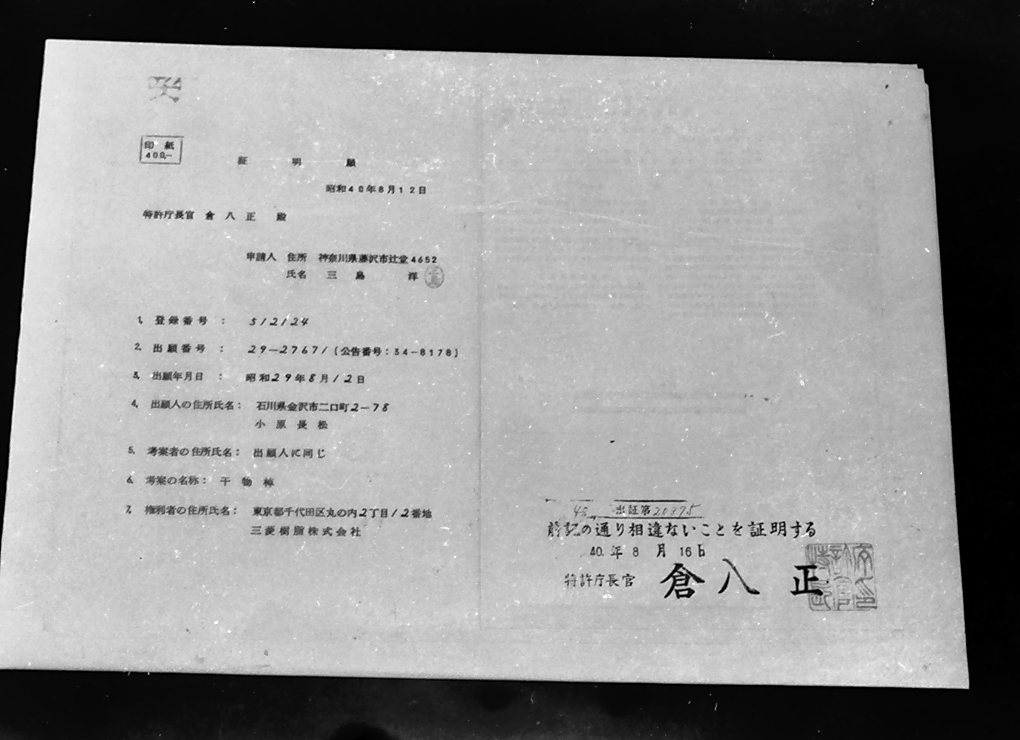 印紙
400,-
証明願
昭和40年8月12日
特許庁長官 倉八正 殿
申請人 住所 神奈川県藤沢市辻堂4652
氏名 三島 洋
1. 登録番号 : 512124
2. 出願番号 : 29-27671 (公告番号:34-8178)
3. 出願年月日 : 昭和29年8月12日
4. 出願人の住所氏名: 石川県金沢市二口町2-78
小原長松
5. 考案者の住所氏名: 出願人に同じ
6. 考案の名称: 干物棹
7. 権利者の住所氏名: 東京都千代田区丸の内2丁目12番地
三菱樹脂株式会社
出証第20375
前記の通り相違ないことを証明する
40.年8月16日
特許庁長官 倉八正